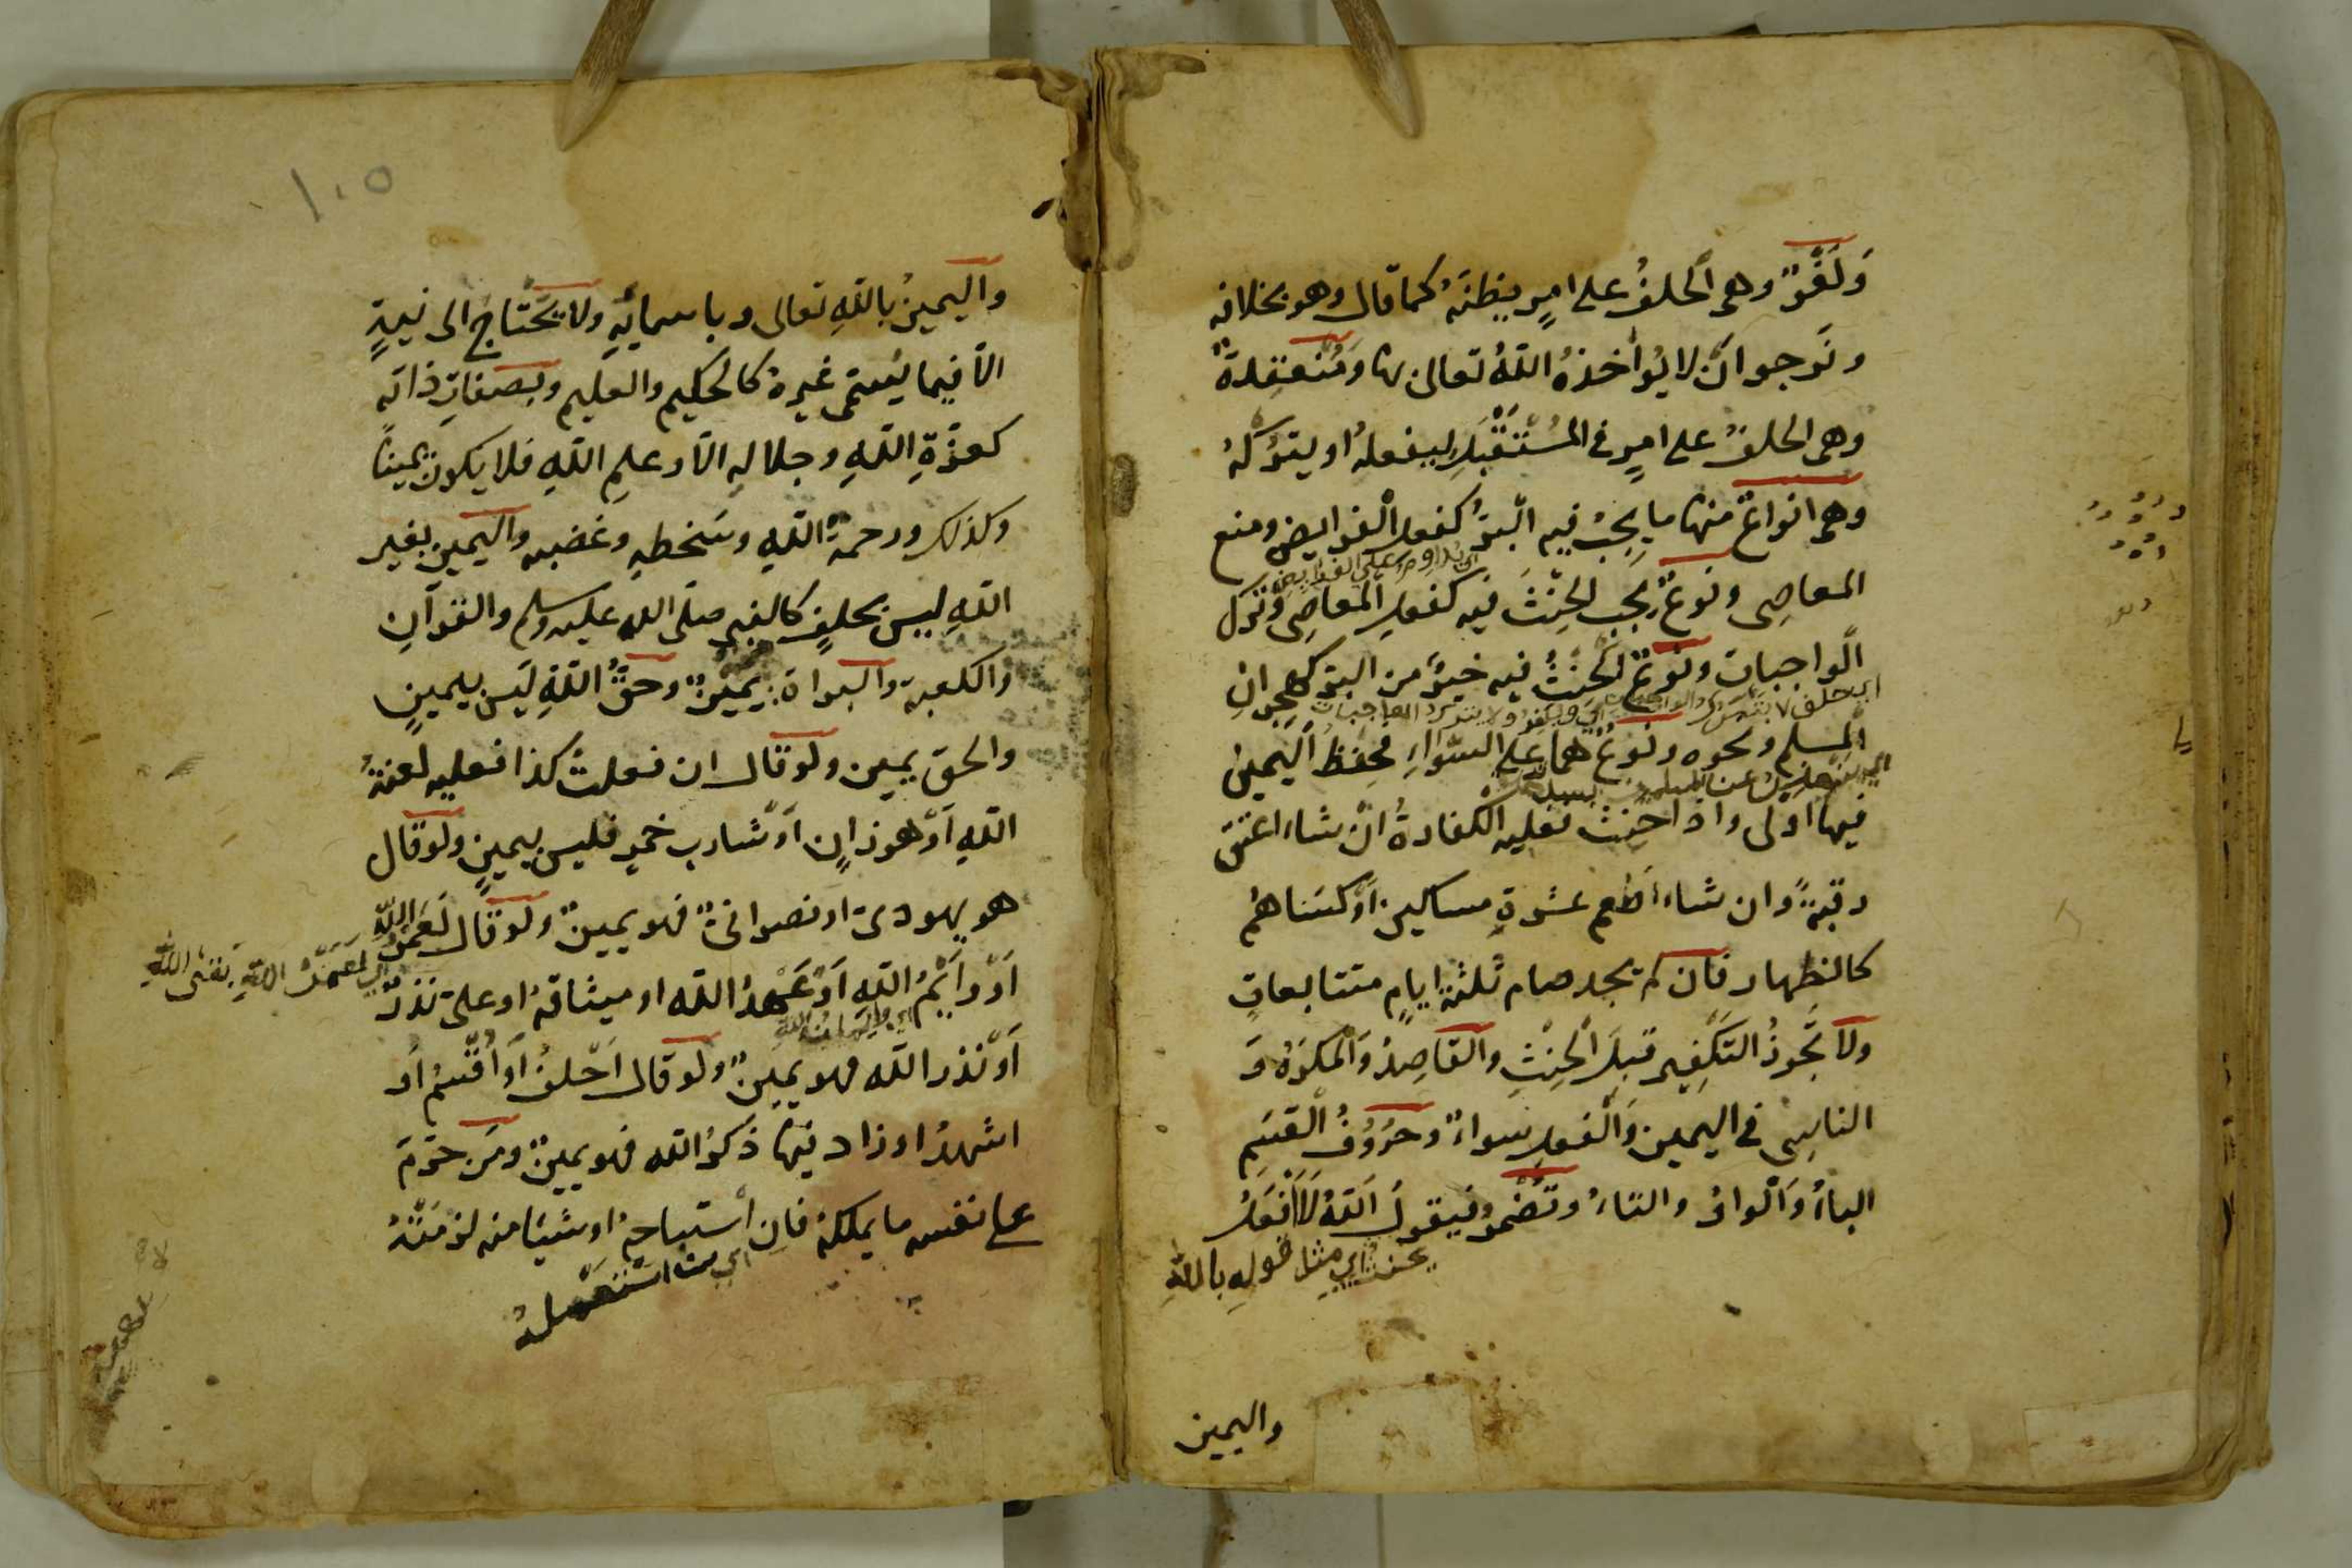 وَلَغْوٌ وهى الحلفُ على امرٍ يظنّهُ كما قال وهو بخلافه
ونَرجوا انْ لا يُواخذهُ اللّهُ تعالى بها ومُنْعقِدةٌ
وهى الحلفُ على امرٍ فى المُسْتَقْبَلِ ليفعلهُ او يتركهُ
وهى انواعٌ منها ما يجبُ فيه البّرُ كفعل الفرايض ومنع
المعاصى ونوعٌ يجب الحِنْثُ فيه كفعلِ المعاصى وترك
اي يداوم على الفرايض
الواجبات ونوعٌ الحِنثُ فيه خيرٌ من البرّ كهجرانِ
المسلم ونحوه ونوعٌ هما على السّواءِ فحِفظُ اليمين
فيها اَوْلى واذا حنِثَ فعليه الكفارةُ انْ شاء اعتق
رقبةً وان شاء اَطعم عشرةِ مساكين اَوْ كسَاهُم
كالظهار فان لم يجد صام ثلثة ايامٍ متتابعاتٍ
ولا تَجُوزُ التكفير قبلَ الحِنْثِ والقاصِدُ والمكرَهُ وَ
الناسى فى اليمين والفعل سواءٌ وحُرُوفُ القسَمِ
الباءُ وَالْواوُ والتاءُ وتُضْمَرُ فيقول اللّهُ لَاَفْعَلُ
اي مثل قولهِ باللهِ
واليمين
١٠٥
واليمينُ باللّهِ تعالى وباسمائهِ ولا يَحْتاجُ الى نيةٍ
الّا فيما يُسمّى غيرهُ كالحكيم والعليم وبصفاتِ ذاته
كعزّةِ اللّهِ وجلاله الّا وعلمِ اللّهِ فلا يكون يمينًا
وكذلك ورحمةُ اللّهِ وسَخطهِ وغضبه واليمين بغير
اللّهِ ليس بحلفٍ كالنبى صلى الله عليه وسلم والقرآنِ
والكعبة والبراة يمينٌ وحقُّ اللّهِ ليس بيمينٍ
والحق يمين ولو قال ان فعلتُ كذا فعليه لعنةُ
اللّهِ اَوْ هو زانٍ اَوْ شارب خمرٍ فليس بيمينٍ ولو قال
هو يهودىّ او نصرانىّ فهو يمينٌ ولو قال لعَمْرُ اللّه
اي لعمر الله بقى الله
اَوْ وَاَيْمُ اللّهِ اَوْ عَهدُ اللّه او ميثاقهُ او علىّ نذرٌ
اَوْ نذر اللّه فهو يمينٌ ولو قال اَحْلفُ اَوْ اُقْسِمُ اَو
اشهدُ او زاد فيها ذكرُ اللّه فهو يمينٌ ومَن حرّمَ
على نفسه ما يملكهُ فان استباحهُ او شيئا منه لزمَتْهُ
اي استعمله